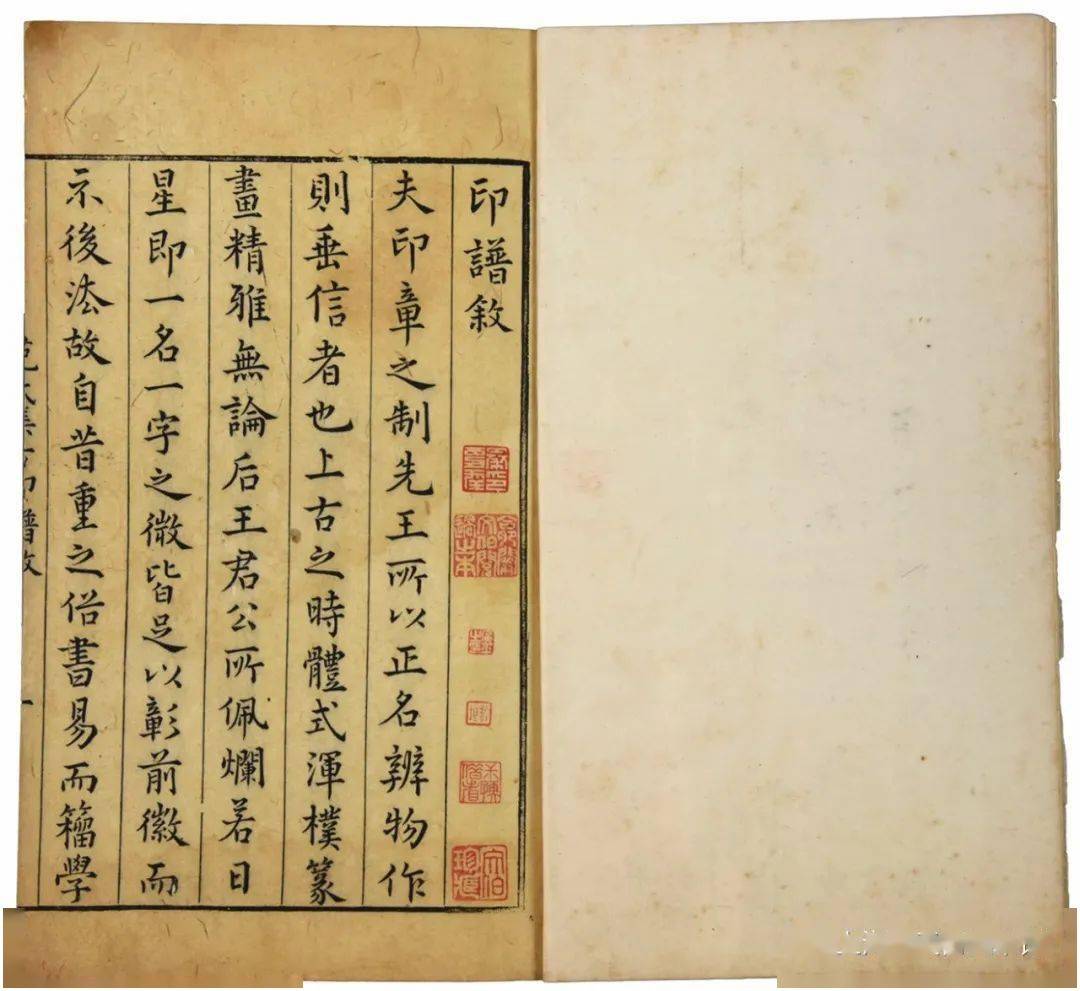 印譜敘
夫印章之制先王所以正名辨物作
則垂信者也上古之時體式渾樸篆
畫精雅無論后王君公所佩爛若日
星即一名一字之微皆足以彰前徽而
示後法故自昔重之俗書易而籀學